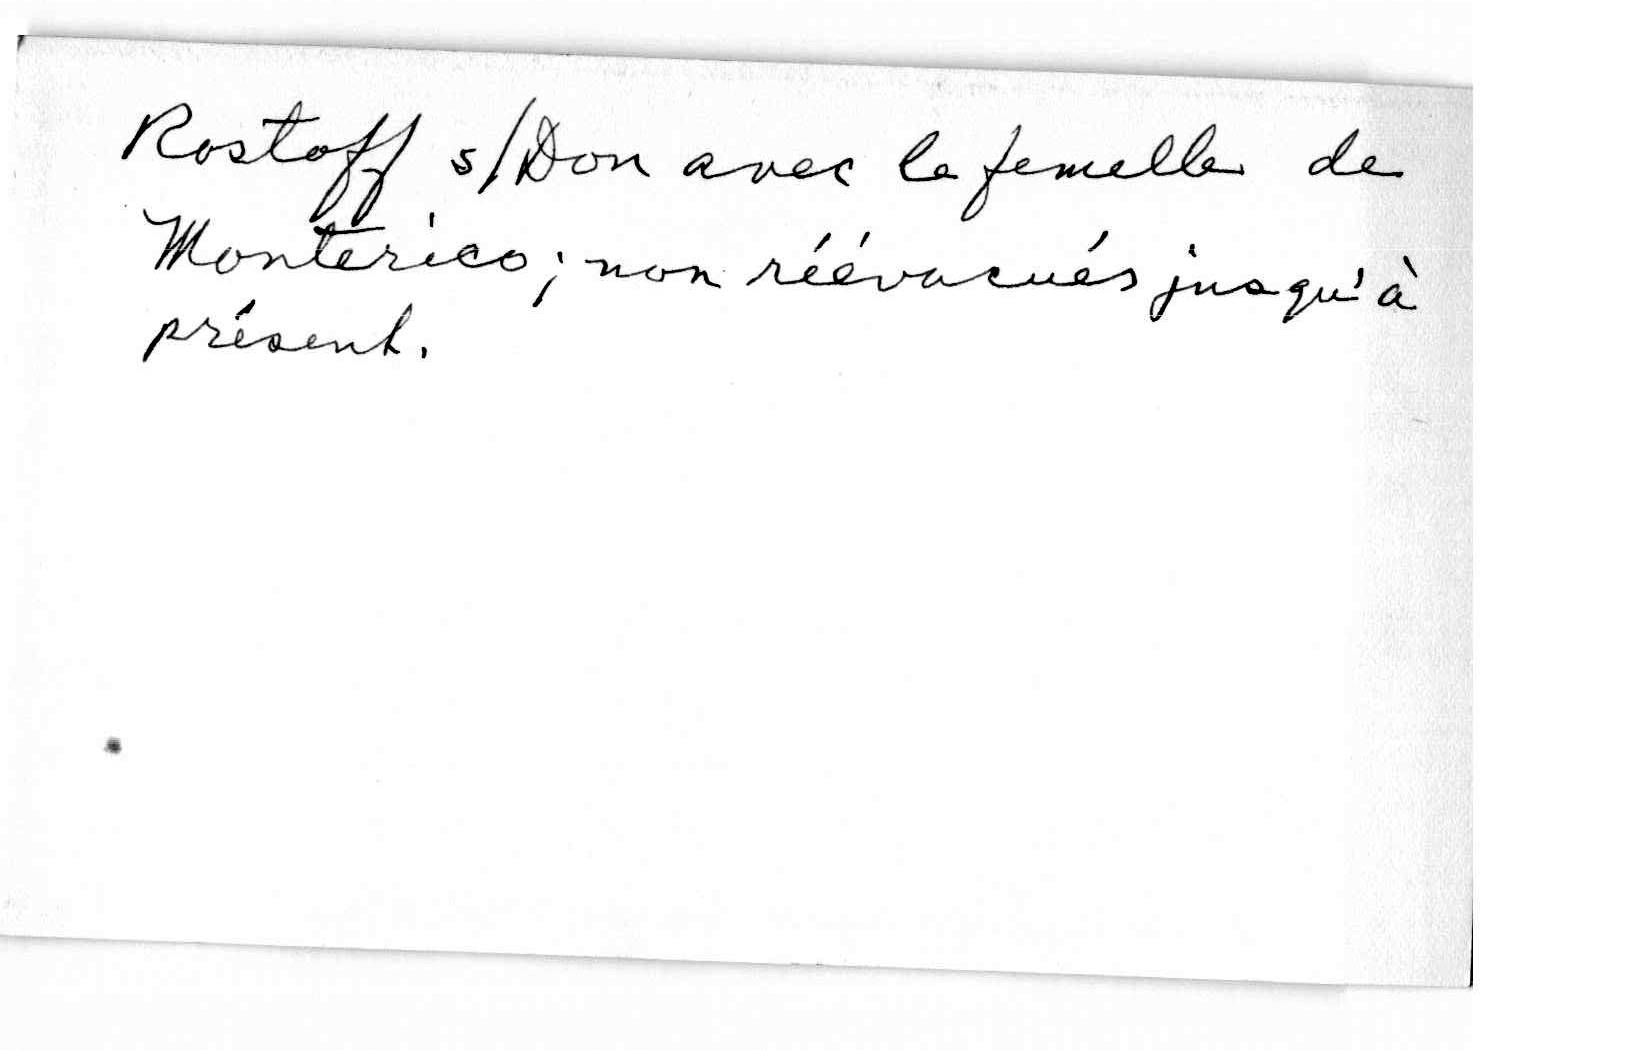 Rostoff s/Don avec la femelle de
Monterico; non réévacués jusqu'à
présent.